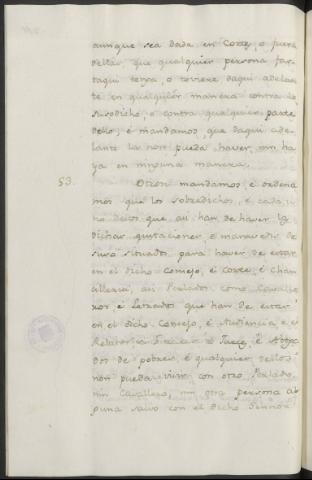 aunque sea dada en Corte, o fuera
della, que qualquier persona fas-
taqui tenga, o toviere daqui adelan-
te en qualquier manera contra lo
susodicho, o contra qualquier parte
dello, é mandamos, que daqui ade-
lante la non pueda haver, nin ha-
ya en ninguna manera.
53. Otrosi mandamos, é ordena-
mos que los sobredichos, é cada u-
no dellos que asi han de haver las
dichas quitaciones, é maravedis de
suso situados, para haver de estar
en el dicho Consejo, é Corte, é Chan-
cilleria, asi Perlados como Cavalle-
ros, é Letrados que han de estar
en el dicho Consejo, é Audiencia, é el
Relator, é é Juece, é Aboga-
dos de pobres, é qualquier dellos
non pueda vivir con otro Perlado,
nin Cavallero, nin otra persona al-
guna salvo con el dicho Sennor